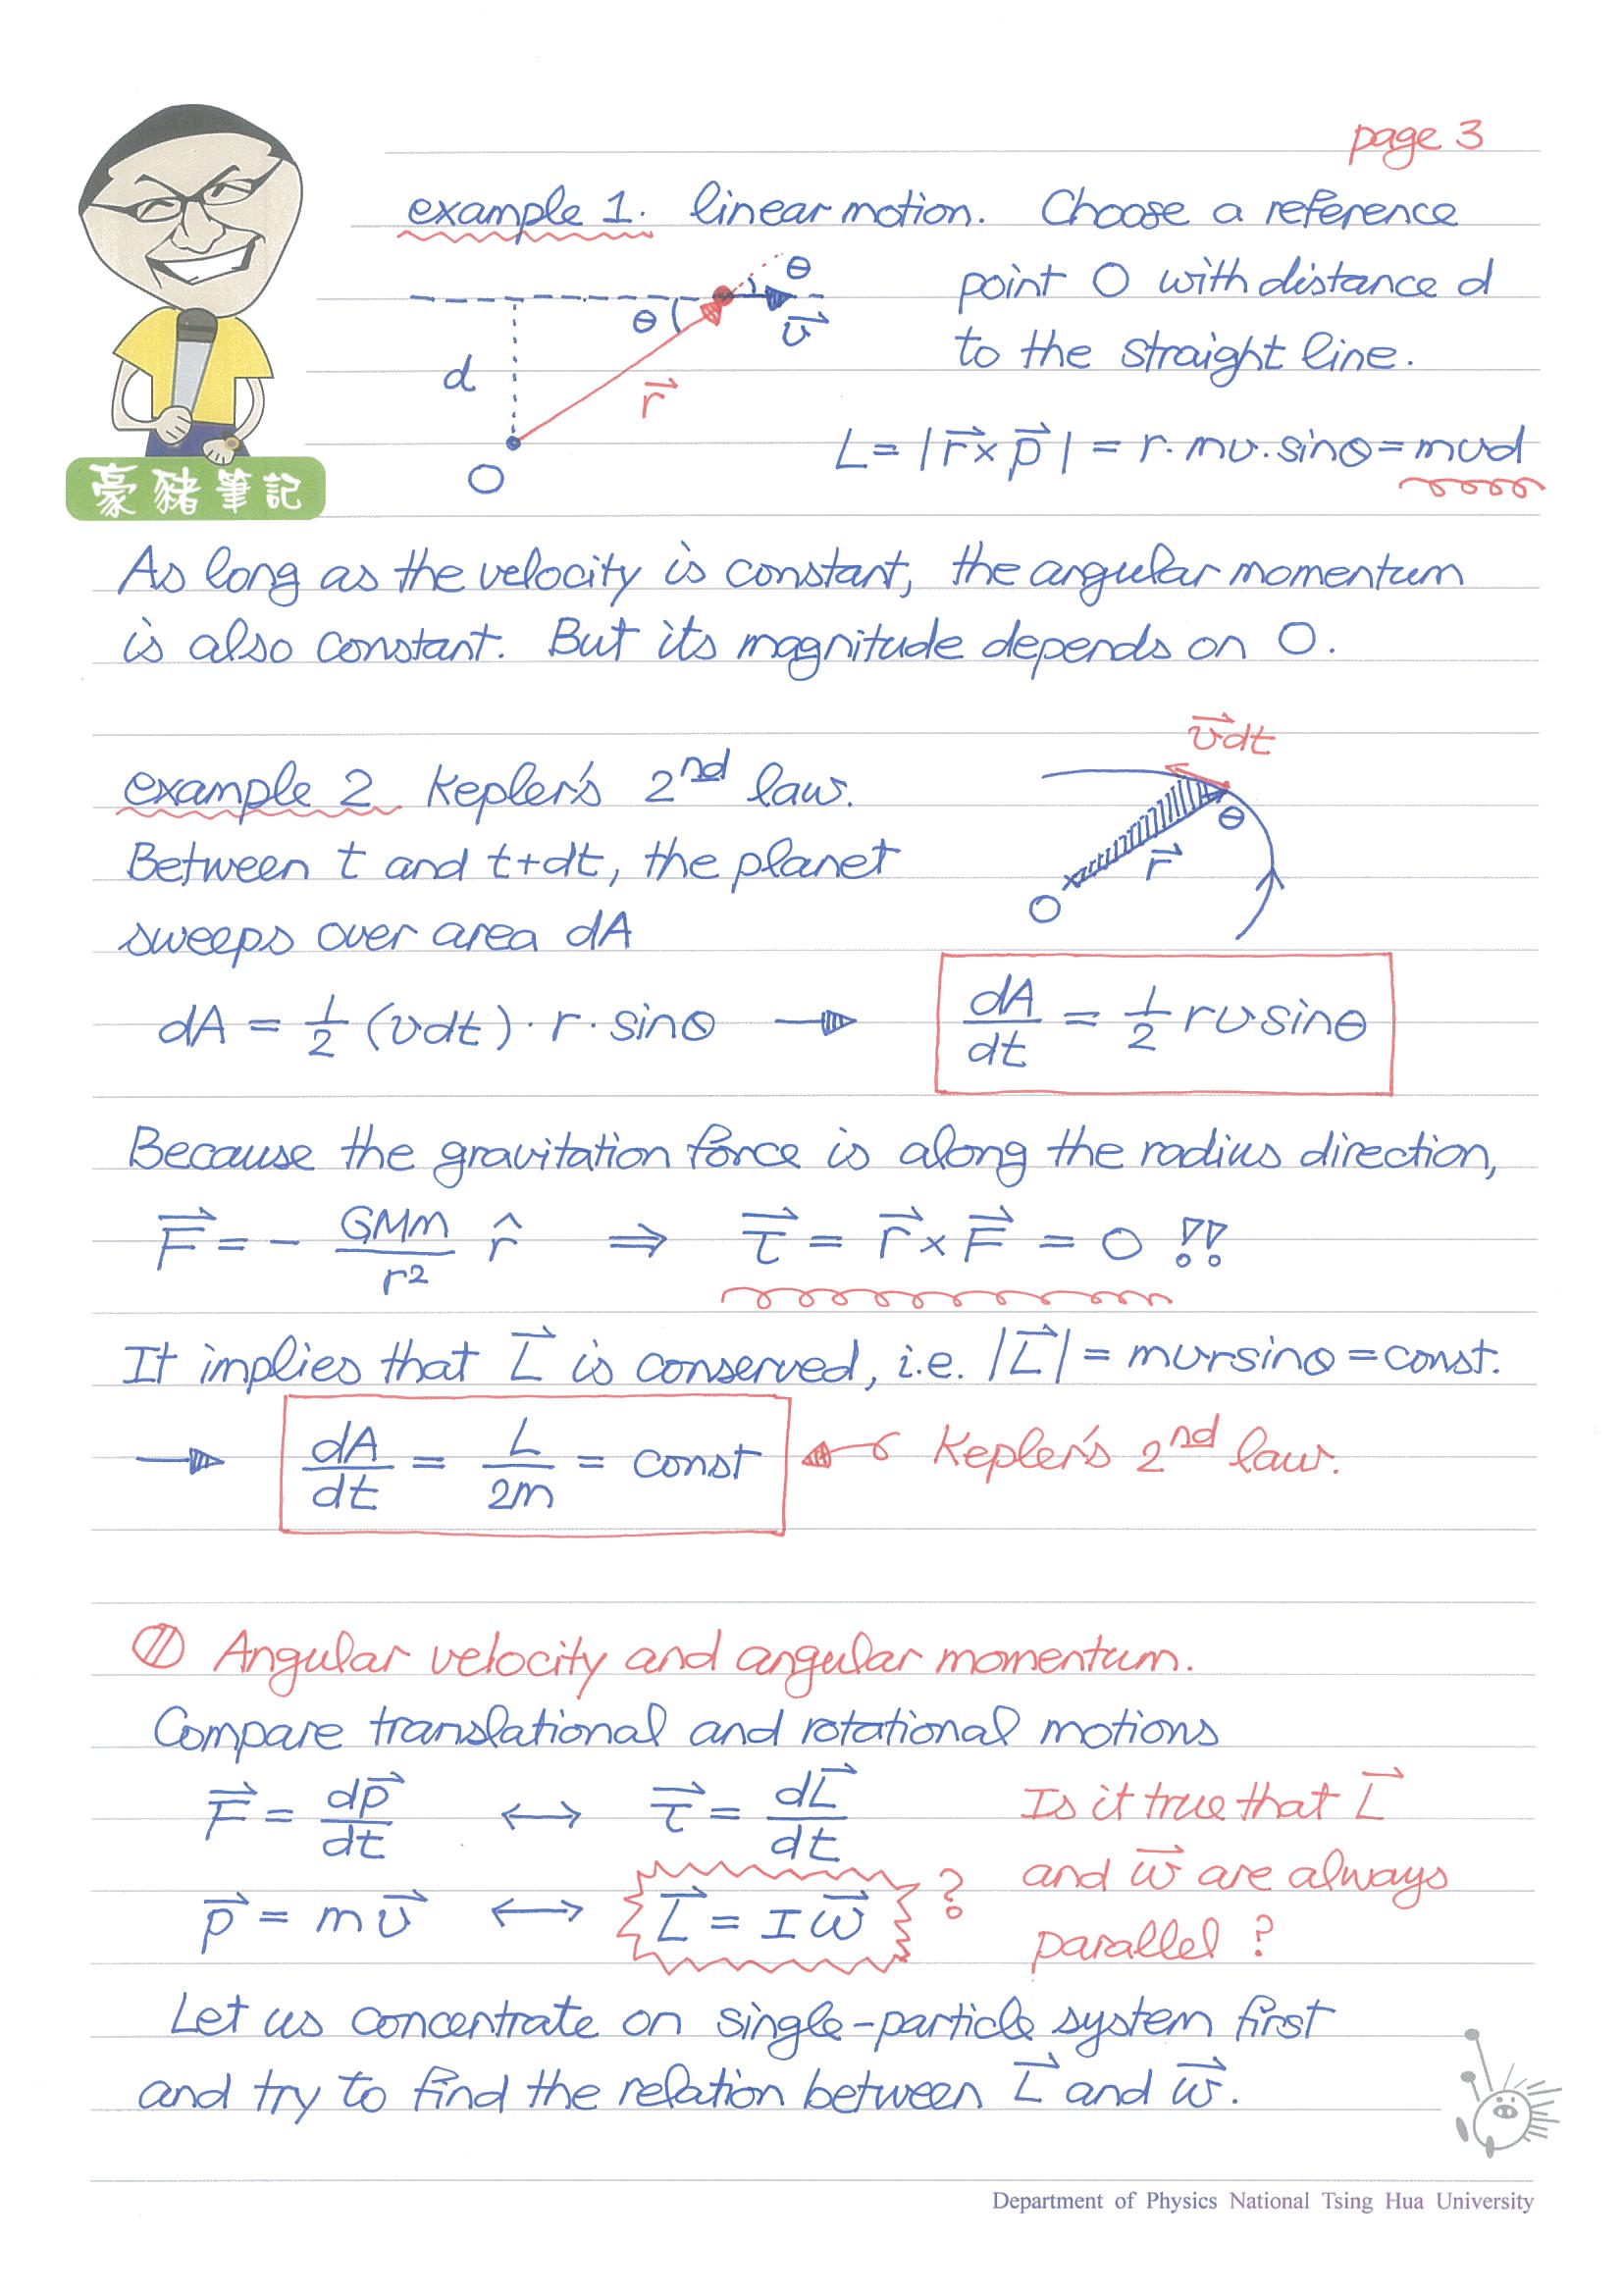 page 3
example 1. linear motion. Choose a reference
point O with distance d
to the straight line.
θ
θ
v⃗
d
r⃗
O
L = |r⃗ × p⃗| = r · mv · sinθ = mvd
豪豬筆記
As long as the velocity is constant, the angular momentum
is also constant. But its magnitude depends on O.
example 2 Kepler's 2nd law.
v⃗dt
θ
r⃗
O
Between t and t+dt, the planet
sweeps over area dA
dA = 1/2 (vdt) · r · sinθ → dA/dt = 1/2 rv sinθ
Because the gravitation force is along the radius direction,
F⃗ = - GMm/r² r̂ ⇒ τ⃗ = r⃗ × F⃗ = 0 !!
It implies that L⃗ is conserved, i.e. |L⃗| = mvr sinθ = const.
→ dA/dt = L/2m = const ← Kepler's 2nd law.
Angular velocity and angular momentum.
Compare translational and rotational motions
F⃗ = dp⃗/dt ↔ τ⃗ = dL⃗/dt
p⃗ = mv⃗ ↔ L⃗ = Iw⃗ ?
Is it true that L⃗
and w⃗ are always
parallel ?
Let us concentrate on single-particle system first
and try to find the relation between L⃗ and w⃗.
Department of Physics National Tsing Hua University